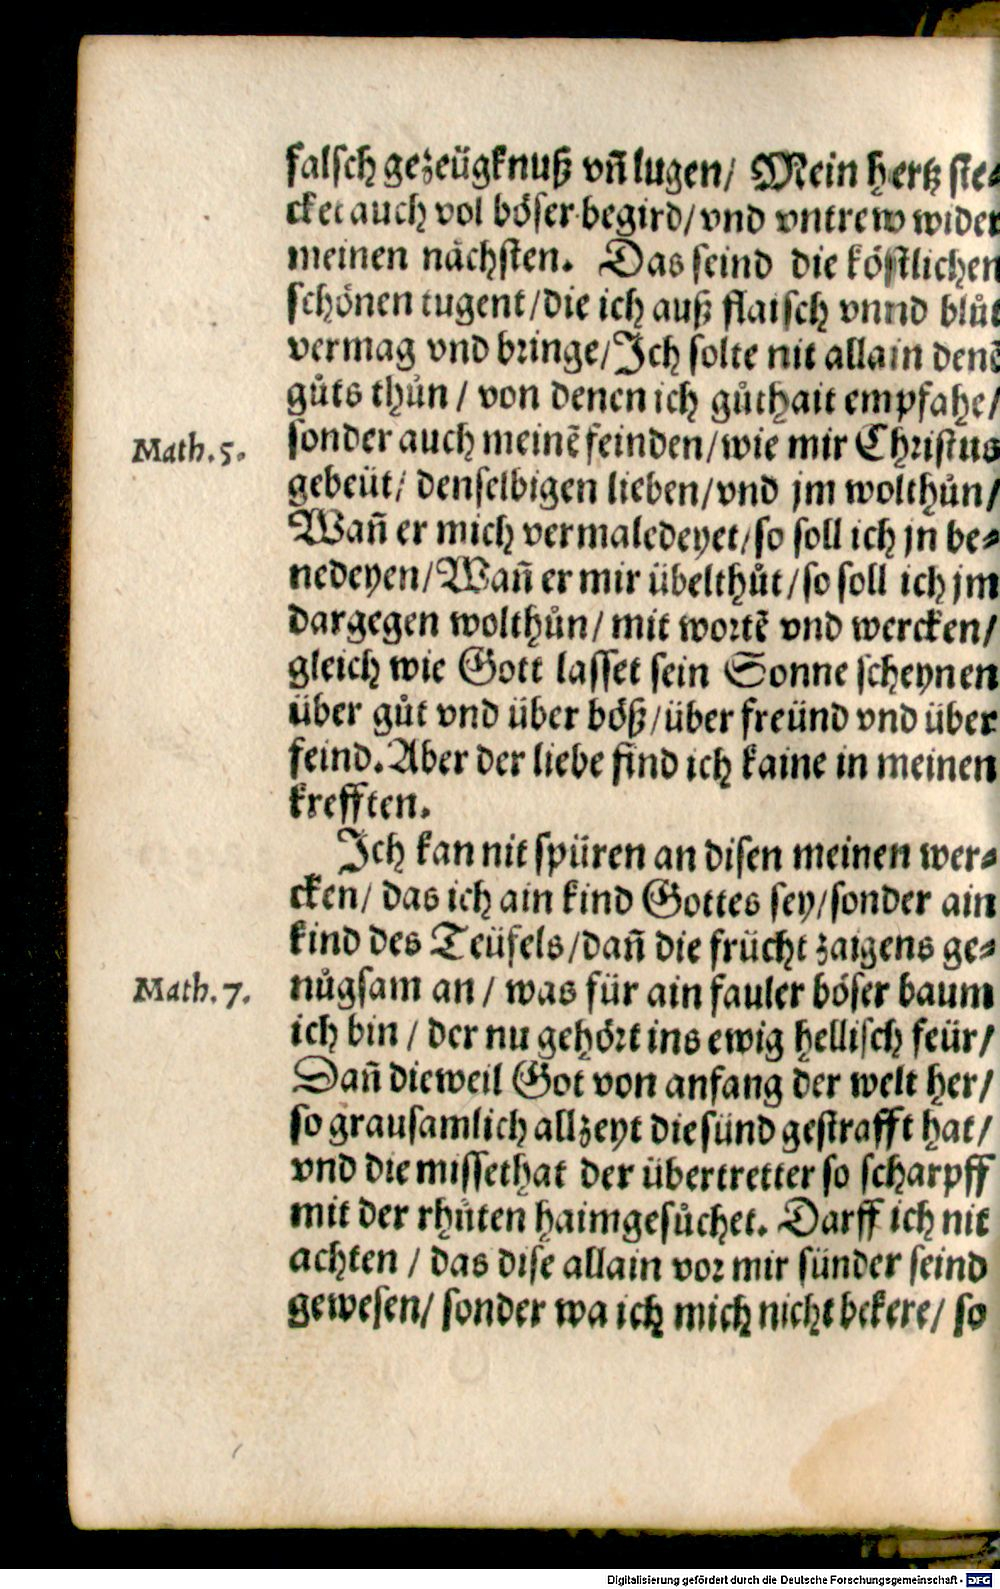 falsch gezeügknuß vñ lugen/ Mein hertz ste⸗
cket auch vol böser begird/ vnd vntrew wider
meinen nächsten. Das seind die köstlichen
schönen tugent/die ich auß flaisch vnnd blůt
vermag vnd bringe/Ich solte nit allain denẽ
gůts thůn / von denen ich gůthait empfahe/
Math. 5. sonder auch meinẽ feinden/wie mir Christus
gebeüt/ denselbigen lieben/vnd jm wolthůn/
Wañ er mich vermaledeyet/so soll ich jn be⸗
nedeyen/Wañ er mir übelthůt/so soll ich jm
dargegen wolthůn/ mit wortẽ vnd wercken/
gleich wie Gott lasset sein Sonne scheynen
über gůt vnd über böß/über freünd vnd über
feind. Aber der liebe find ich kaine in meinen
krefften.
Ich kan nit spüren an disen meinen wer⸗
cken/ das ich ain kind Gottes sey/sonder ain
kind des Teüfels/dañ die frücht zaigens ge⸗
Math. 7. nůgsam an / was für ain fauler böser baum
ich bin / der nu gehört ins ewig hellisch feür/
Dañ dieweil Got von anfang der welt her/
so grausamlich allzeyt die sünd gestrafft hat/
vnd die missethat der übertretter so scharpff
mit der rhůten haimgesůchet. Darff ich nit
achten / das dise allain vor mir sünder seind
gewesen/ sonder wa ich mich nicht bekere/ so
Digitalisierung gefördert durch die Deutsche Forschungsgemeinschaft - DFG